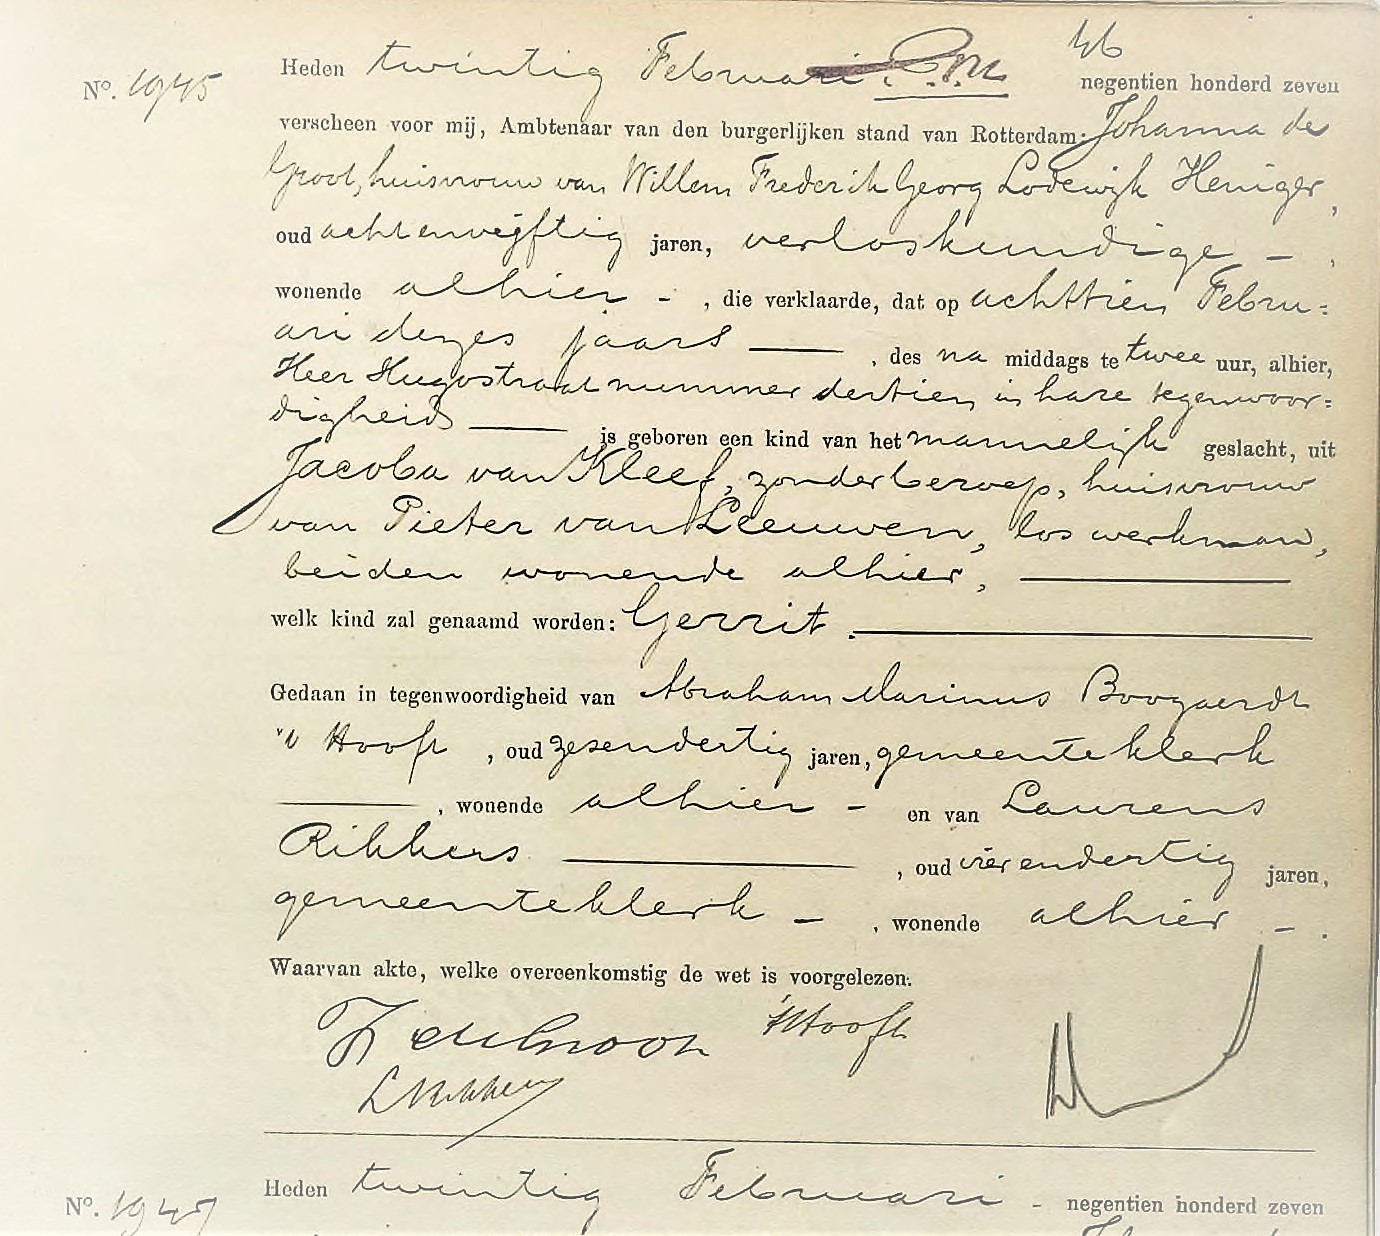 46
Nº. 1945 Heden twintig Februari negentien honderd zeven
verscheen voor mij, Ambtenaar van den burgerlijken stand van Rotterdam: Johanna de
Groot, huisvrouw van Willem Frederik Georg Lodewijk Heniger,
oud achtenvijftig jaren, verloskundige - ,
wonende alhier - , die verklaarde, dat op achttien Febru=
ari dezes jaars —— , des na middags te twee uur, alhier,
Heer Hugostraat nummer dertien in hare tegenwoor=
digheid —— is geboren een kind van het mannelijk geslacht, uit
Jacoba van Kleef, zonder beroep, huisvrouw
van Pieter van Leeuwen, los werkman,
beiden wonende alhier, ——
welk kind zal genaamd worden: Gerrit. ——
Gedaan in tegenwoordigheid van Abraham Marinus Boogaerdt
't Hooft , oud zesendertig jaren, gemeenteklerk
—— , wonende alhier - en van Laurens
Rikkers —— , oud vierendertig jaren,
gemeenteklerk - , wonende alhier - .
Waarvan akte, welke overeenkomstig de wet is voorgelezen.
J de Groot 't Hooft
L Rikkers
Nº. 1947 Heden twintig Februari - negentien honderd zeven